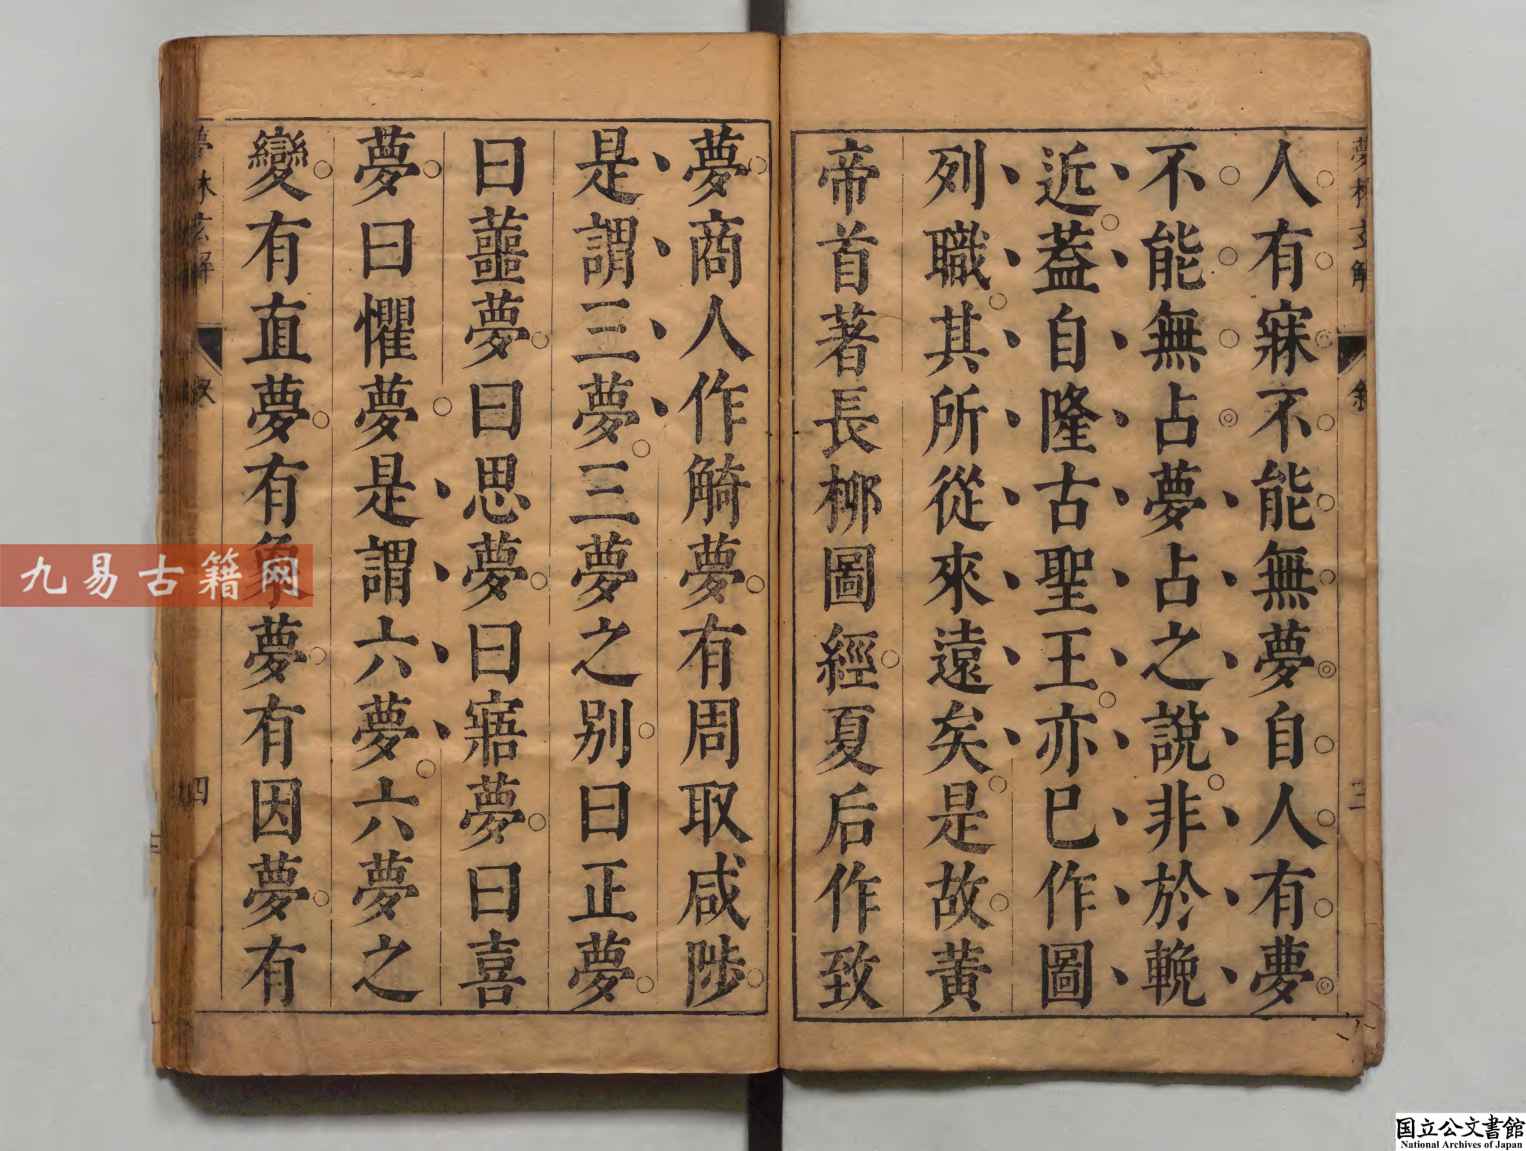 人有寐不能無夢自人有夢
不能無占夢占之說非於輓
近蓋自隆古聖王亦已作圖
列職其所從來遠矣是故黃
帝首著長柳圖經夏后作致
夢商人作觭夢有周取咸陟
是謂三夢三夢之别曰正夢
曰蘁夢曰思夢曰寤夢曰喜
夢曰懼夢是謂六夢六夢之
變有直夢有象夢有因夢有
夢林玄解
四
九易古籍网
国立公文書館
National Archives of Japan